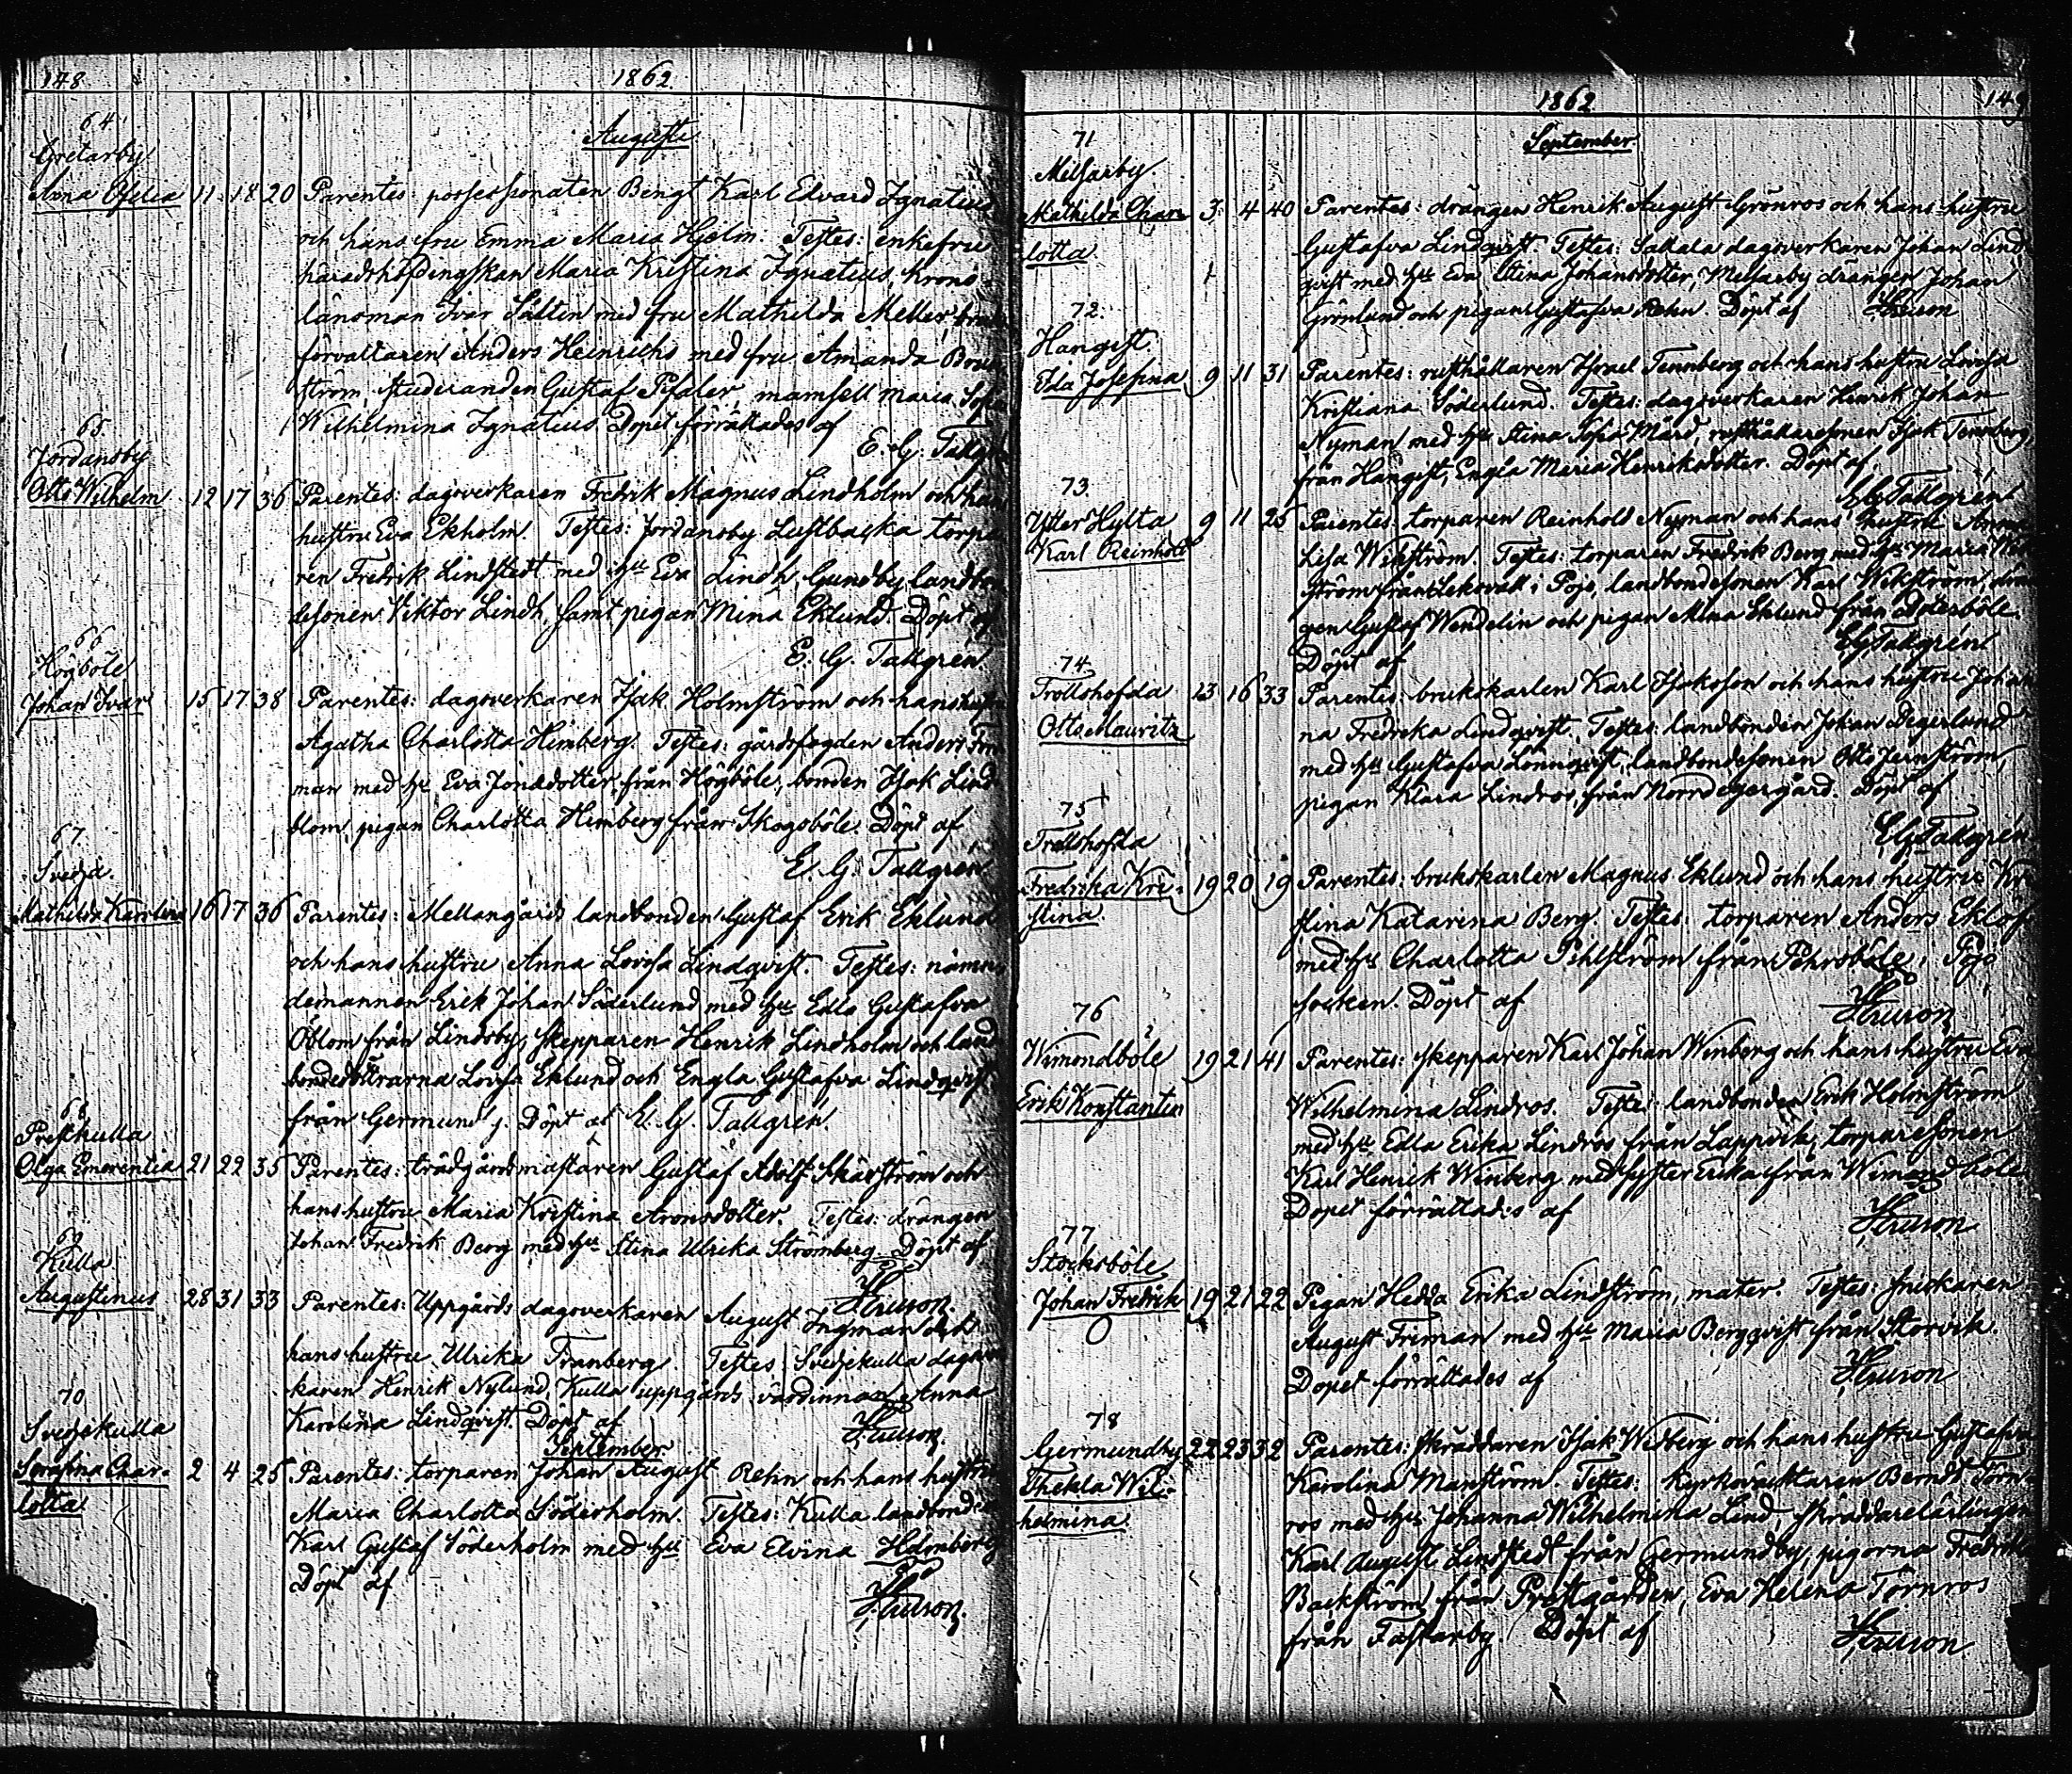 148
1862
Augusti
64
Gretarby
Anna Ofelia 11 18 20 Parentes: possessionaten Bengt Karl Edvard Ignatius
och hans fru Emma Maria Hjelm. Testes: enkefru
häradshöfdingskan Maria Kristina Ignatius, krono-
länsman Ivar Sältin med fru Mathilda Meller,
förvaltaren Anders Heinrichs med fru Amanda
ström, studeranden Gustaf Pfaler, mamsell Maria Sofia
Wilhelmina Ignatius Dopet förrättades af
E. G. Tallgrén
65.
Jordansby
Otto Wilhelm 12 17 36 Parentes: dagsverkaren Fredrik Magnus Lindholm och hans
hustru Eva Ekholm. Testes: Jordansby Lustbacka torpa
ren Fredrik Lindstedt med hu Eva Lindh, Gundby landbon
desonen Viktor Lindh, samt pigan Mina Eklund. Döpt af
E. G. Tallgrén.
66
Högböle
Johan Ivar 15 17 38 Parentes: dagsverkaren Isak Holmström och hans hustru
Agatha Charlotta Himberg. Testes: gårdsfogden Anders
man med hu Eva Jonasdotter, från Högböle, bonden Isak Lind-
blom, pigan Charlotta Himberg från Skogsböle. Döpt af
E. G. Tallgrén
67.
Svedja.
Mathilda Karolina 16 17 36 Parentes: Mellangårds landbonden Gustaf Erik Eklund
och hans hustru Anna Lovisa Lindqvist. Testes: nämn-
demannen Erik Johan Söderlund med hu Edla Gustafva
Öblom från Lindsby, skepparen Henrik Lindholm och land
bondedöttrarna Lovisa Eklund och Engla Gustafva Lindqvist
från Germundj. Döpt af E. G. Tallgrén.
68
Prestkulla
Olga Emerentia 21 22 35 Parentes: trädgårdsmästaren Gustaf Adolf Skärström och
hans hustru Maria Kristina Aronsdotter. Testes: drängen
Johan Fredrik Berg med hu Stina Ulrika Strömberg. Döpt af
69
Kulla
Augustinus 28 31 33 Parentes: Uppgårds dagsverkaren August Ingman och
hans hustru Ulrika Tranberg. Testes: Svedjekulla dagsver
karen Henrik Nylund, Kulla uppgårds värdinnan Anna
Karolina Lindqvist. Döpt af
September
70
Svedjekulla
Serafina Char- 2 4 25 Parentes: torparen Johan August Rehn och hans hustru
lotta Maria Charlotta Söderholm. Testes: Kulla landbonden
Karl Gustaf Söderholm med hu Eva Elvina Holmberg
Döpt af
1862
149
September
71
Melsarby.
Mathilda Char- 3 4 40 Parentes: drängen Henrik August Grönros och hans hustru
lotta Gustafva Lindqvist. Testes: Sattala dagsverkaren Johan Lind-
qvist med hu Eva Stina Johansdotter, Melsarby drängen Johan
Grönlund och pigan Gustafva Rehn. Döpt af
72.
Hangist
Ida Josefina 9 11 31 Parentes: rusthållaren Israel Tennberg och hans hustru Lovisa
Kristiana Söderlund. Testes: dagsverkaren Henrik Johan
Nyman med hu Stina Sofia Mård, rusthållaresonen Isak Tennberg
från Hangist, Engla Maria Henriksdotter. Döpt af
EG Tallgrén
73.
Ytter Hylta 9 11 25 Parentes: torparen Reinhold Nyman och hans hustru Anna
Karl Reinhold Lisa Wikström. Testes: torparen Fredrik Berg med hu Maria Wik
ström från i Pojo, landbondesonen Karl Wikström, drän
gen Gustaf Wendelin och pigan Mina Eklund från
Döpt af EG Tallgrén
74
Trollshofda 13 16 33 Parentes: brukskarlen Karl Isaksson och hans hustru Johan
Otto Mauritz na Fredrika Lindqvist. Testes: landbonden Johan Degerlund
med hu Gustafva Lönnqvist, landbondesonen Otto Jernström,
pigan Klara Lindros, från Norrdegergård. Döpt af
EG Tallgrén
75
Trollshofda
Fredrika Kri- 19 20 19 Parentes: brukskarlen Magnus Eklund och hans hustru Kri
stina stina Katarina Berg. Testes: torparen Anders Eklöf
med hu Charlotta Pihlström från Pehrsböle, Pojo
socken. Döpt af
76
Wimondböle 19 21 41 Parentes: skepparen Karl Johan Winberg och hans hustru Eva
Erik Konstantin Wilhelmina Lindros. Testes: landbonden Erik Holmström
med hu Edla Erika Lindros från Lappvik, torparesonen
Karl Henrik Winberg med syster Erika från Wimondböle
Dopet förrättades af
77
Stocksböle
Johan Fredrik 19 21 22 Pigan Hedda Erika Lindström, mater. Testes: snickaren
August Friman med hu Maria Bergqvist från Storvik.
Dopet förrättades af
78
Germundby 22 23 32 Parentes: skräddaren Isak Widberg och hans hustru Gustafva
Thekla Wil- Karolina Manström. Testes: kyrkoväktaren Berndt Törn-
helmina ros med hu Johanna Wilhelmina Lind, skräddarelärlingen
Karl August Lindstedt från Germundby, pigorna Fredrika
Backström från Prestgården, Eva Helena Törnros
från Fastarby. Döpt af